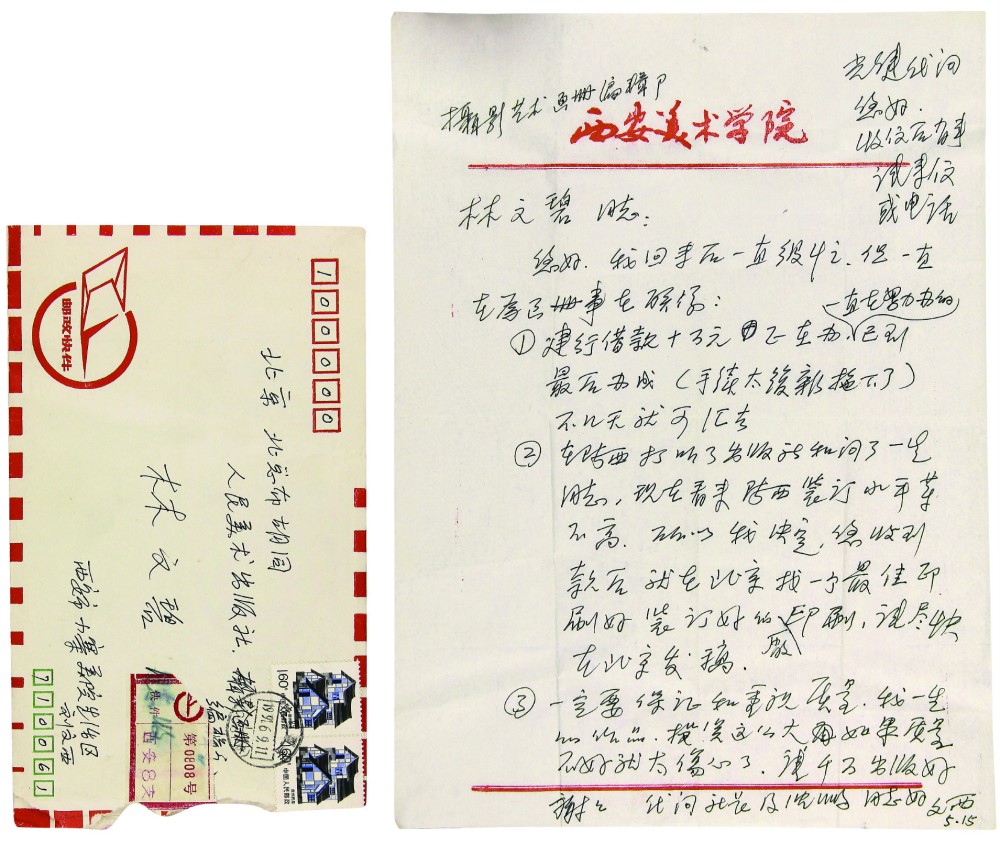 邮政快件
100000
北京 北总布胡同
人民美术出版社
林文碧
西安市小寨美院家属区
刘文西
710061
第0808号
西安
160分
中国人民邮政
摄影艺术画册编辑
西安美术学院
光健代问
您好.
收信后有事
请来信
或电话
林文碧 同志.
您好. 我回来后一直很忙. 但一直
在为画册事在联系:
一直在努力办的
① 建行借款十万元 正在办, 已到
最后办成 (手续太复杂拖久了)
不几天就可汇去
② 在陕西打听了出版社和问了一些
同志, 现在看来陕西装订水平普
不高. 所以我决定, 您收到
款后就在北京找一个最佳印
刷好装订好的印刷厂, 请尽快
在北京发稿.
③ 一定要保证和重视质量. 我一生
的作品. 投资这么大再如果质量
不好就太伤心了. 请千万出版好
谢谢 代问社长及 同志好
文西
5.15